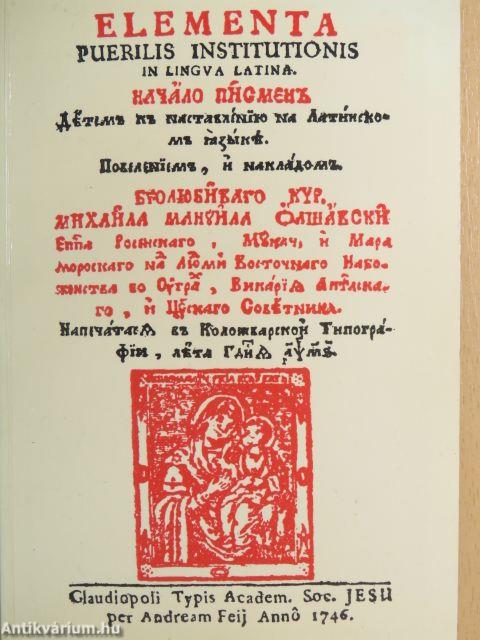 ELEMENTA
PUERILIS INSTITUTIONIS
IN LINGVA LATINA.
НАЧАЛО ПИСМЕНЪ
Дѣтемъ къ наставлѣнїю на Латинско-
мъ ꙗзыкѣ.
Повелѣнїемъ, и накладомъ.
БГОЛЮБИВАГО КѴР.
МИХАИЛА МАНꙊИЛА ОЛШАВСКИ
Еппа Росийскаго, Мꙋкач, и Мара
морскаго на Людми Восточнаго Набо-
женства во Оугрѧ, Викарїѧ Апⷭлска-
го, и Цꙋскаго Совѣтника.
Напечатасѧ въ Коложварской Типогра-
фїи, лѣта
Claudiopoli Typis Academ. Soc. JESU
per Andream Feij Annô 1746.
Antikvárium.hu